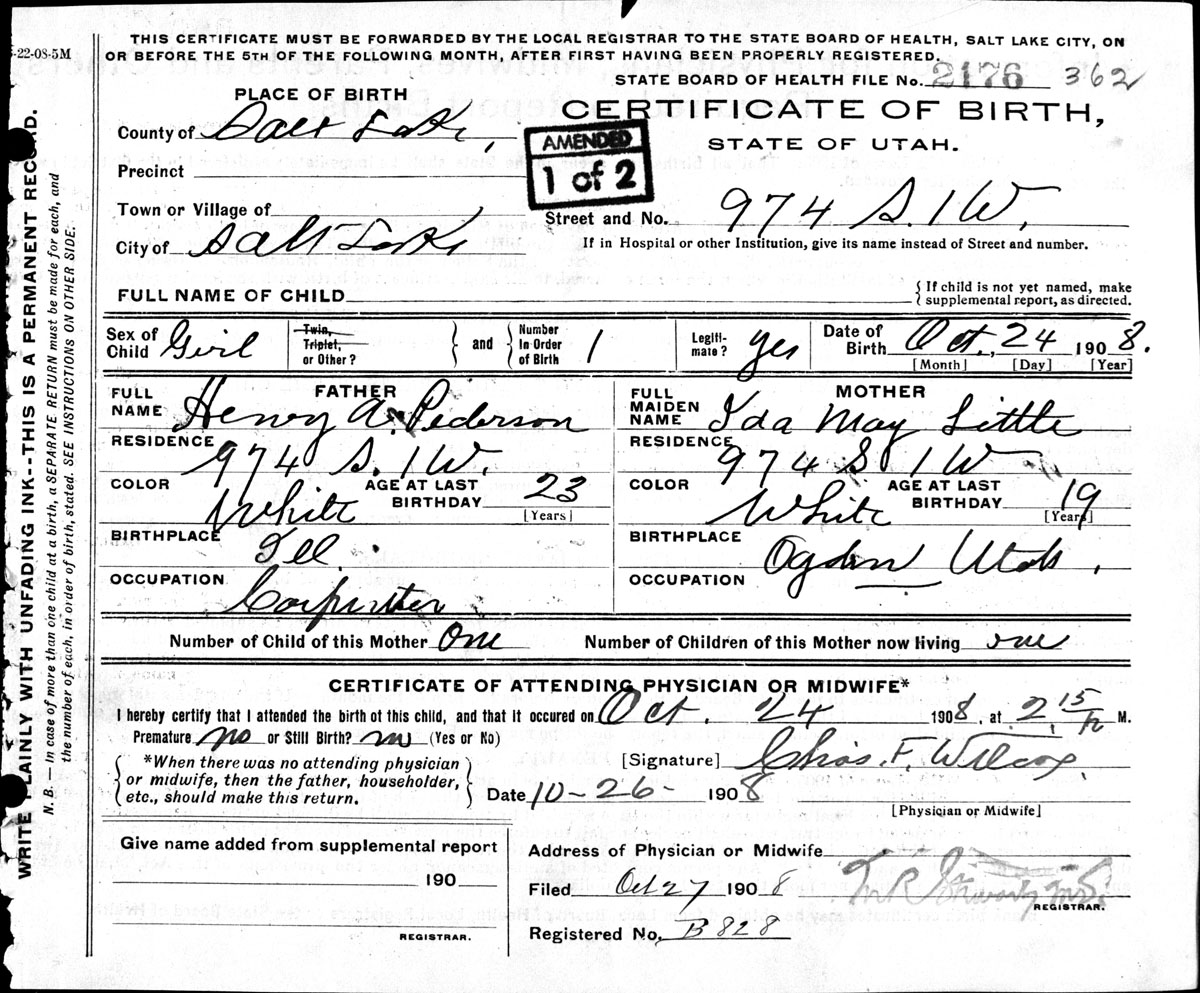 -22-08-5M
THIS CERTIFICATE MUST BE FORWARDED BY THE LOCAL REGISTRAR TO THE STATE BOARD OF HEALTH, SALT LAKE CITY, ON
OR BEFORE THE 5TH OF THE FOLLOWING MONTH, AFTER FIRST HAVING BEEN PROPERLY REGISTERED.
STATE BOARD OF HEALTH FILE No. 2176 362
PLACE OF BIRTH
CERTIFICATE OF BIRTH,
STATE OF UTAH.
County of Salt Lake,
AMENDED
1 of 2
Precinct
Town or Village of
Street and No. 974 S. 1 W.
City of Salt Lake
If in Hospital or other Institution, give its name instead of Street and number.
FULL NAME OF CHILD
{If child is not yet named, make
supplemental report, as directed.
Sex of Child Girl
Twin, Triplet, or Other?
and
Number In Order of Birth 1
Legiti-mate? yes
Date of Birth Oct. 24 1908.
[Month] [Day] [Year]
FATHER
FULL NAME Henry A. Pederson
RESIDENCE 974 S. 1 W.
COLOR White
AGE AT LAST BIRTHDAY 23
[Years]
BIRTHPLACE Ill.
OCCUPATION Carpinter
MOTHER
FULL MAIDEN NAME Ida May Little
RESIDENCE 974 S 1 W
COLOR White
AGE AT LAST BIRTHDAY 19
[Years]
BIRTHPLACE Ogden Utah.
OCCUPATION
Number of Child of this Mother One
Number of Children of this Mother now living one
CERTIFICATE OF ATTENDING PHYSICIAN OR MIDWIFE*
I hereby certify that I attended the birth of this child, and that it occured on Oct. 24 1908, at 2 15 P M.
Premature no or Still Birth? no (Yes or No)
*When there was no attending physician
or midwife, then the father, householder,
etc., should make this return.
[Signature] Chas. F. Wilcox
Date 10-26- 1908
[Physician or Midwife]
Give name added from supplemental report
190
REGISTRAR.
Address of Physician or Midwife
Filed Oct 27 1908
REGISTRAR.
Registered No. B 828
WRITE PLAINLY WITH UNFADING INK--THIS IS A PERMANENT RECORD.
N. B.— In case of more than one child at a birth, a SEPARATE RETURN must be made for each, and
the number of each, in order of birth, stated. SEE INSTRUCTIONS ON OTHER SIDE.